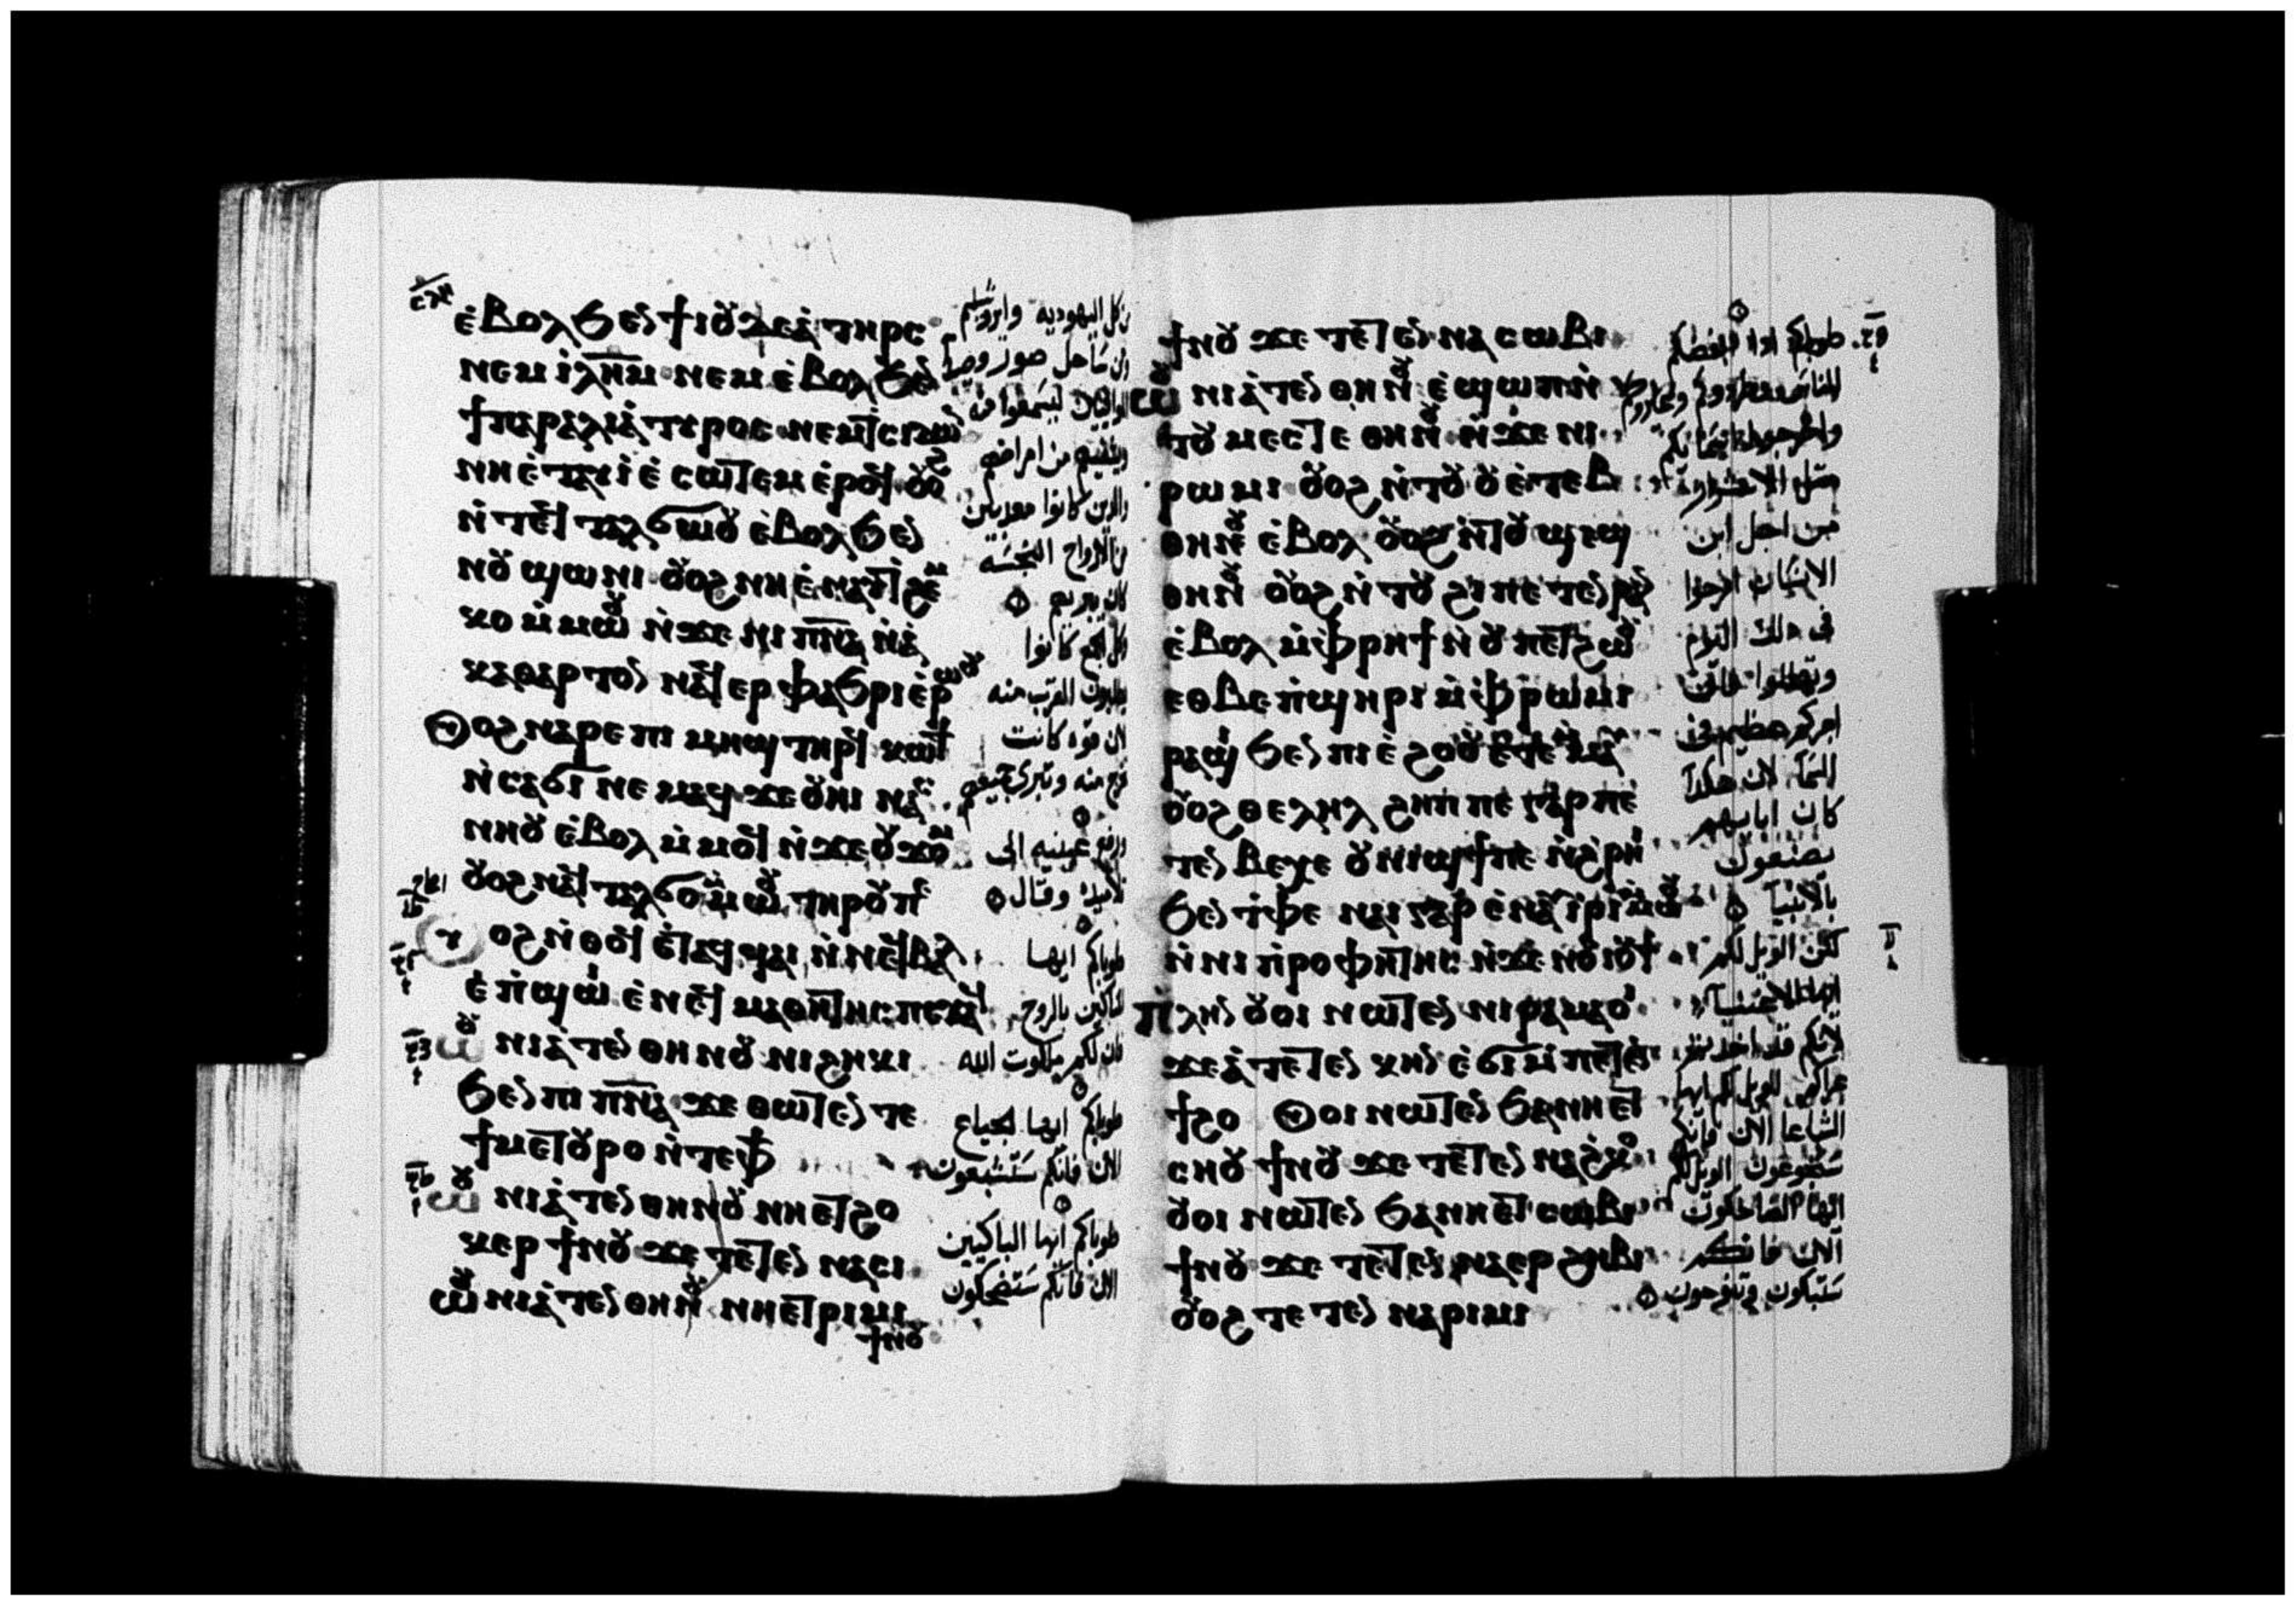 ⲉ̀ⲃⲟⲗϧⲉⲛ ϯⲓⲟⲩⲇⲉⲁ̀ ⲧⲏⲣⲥ
ⲛⲉⲙ ⲓ̀ⲗⲏ̅ⲙ̅ ⲛⲉⲙ ⲉ̀ⲃⲟⲗϧⲉⲛ
ϯⲡⲁⲣⲁⲗⲓⲁ̀ ⲧⲩⲣⲟⲥ ⲛⲉⲙ ⲧⲥⲓⲇⲱⲛ
ⲛⲏⲉ̀ⲧⲁⲩⲓ̀ ⲉ̀ ⲥⲱⲧⲉⲙ ⲉ̀ⲣⲟϥ ⲟⲩⲟϩ
ⲛ̀ⲧⲉϥ ⲧⲁⲗϭⲱⲟⲩ ⲉ̀ⲃⲟⲗϧⲉⲛ
ⲛⲟⲩ ϣⲱⲛⲓ ⲟⲩⲟϩ ⲛⲏⲉ̀ⲛⲁⲩⲧϩⲉⲙ
ⲕⲟ ⲙ̀ⲙⲱⲟⲩ ⲛ̀ϫⲉ ⲛⲓ ⲡ̅ⲛ̅ⲁ̅ ⲛ̀ⲁ̀
ⲕⲁⲑⲁⲣⲧⲟⲛ ⲛⲁϥ ⲉⲣ ⲫⲁϧⲣⲓ ⲉ̀ⲣⲱⲟⲩ
ⲟⲩⲟϩ ⲛⲁⲣⲉ ⲡⲓ ⲙⲏϣ ⲧⲏⲣϥ ⲕⲱϯ
ⲛ̀ⲥⲁ ϭⲓ ⲛⲉⲙⲁϥ ϫⲉ ⲟⲩⲏⲓ ⲛⲁⲥ
ⲛⲏⲟⲩ ⲉ̀ⲃⲟⲗ ⲙ̀ⲙⲟϥ ⲛ̀ϫⲉ ⲟⲩ ϫⲟⲙ
ⲟⲩⲟϩ ⲛⲁϥ ⲧⲁⲗϭⲟ ⲙ̀ⲙⲱⲟⲩ ⲧⲏⲣⲟⲩ ⲡⲉ
ⲟⲩⲟϩ ⲛ̀ⲑⲟϥ ⲉ̀ⲧⲁϥϥⲁⲓ ⲛ̀ⲛⲉϥⲃⲁⲗ
ⲉ̀ ⲡ̀ϣⲱⲓ ⲉ̀ ⲛⲉϥ ⲙⲁⲑⲏⲧⲏⲥ ⲡⲉϫⲁϥ
ⲱⲟⲩ ⲛⲓⲁ̀ⲧⲉⲛ ⲑⲏⲛⲟⲩ ⲛⲓϩⲏⲕⲓ
ϧⲉⲛ ⲡⲓ ⲡ̅ⲛ̅ⲁ̅ ϫⲉ ⲑⲱⲧⲉⲛ ⲧⲉ
ϯⲙⲉⲧⲟⲩⲣⲟ ⲛ̀ⲧⲉ ⲫϯ
ⲱⲟⲩ ⲛⲓⲁ̀ⲧⲉⲛ ⲑⲏⲛⲟⲩ ⲛⲏⲉⲧϩⲟ
ⲕⲉⲣ ϯⲛⲟⲩ ϫⲉ ⲧⲉⲧⲉⲛ ⲛⲁⲥⲓ
ⲱⲟⲩ ⲛⲓⲁ̀ⲧⲉⲛ ⲑⲏⲛⲟⲩ ⲛⲏⲉⲧⲣⲓⲙⲓ
ϯⲛⲟⲩ
من كل اليهودية وايروشليم
ومن ساحل صور وصيدا
ليسمعوا منه
ويشفيهم من امراضهم
والذين كانوا معذبين
من الارواح النجسة
كان يبريهم
وكل الجمع كانوا
يطلبون القرب منه
لان قوة كانت
تخرج منه وتبرى جميعهم
ورفع عينيه الى
تلاميذه وقال
طوباكم ايها
المساكين بالروح
فان لكم ملكوت الله
طوباكم ايها الجياع
الان فانكم ستشبعون
طوباكم ايها الباكين
الان فانكم ستضحكون
ϯⲛⲟⲩ ϫⲉ ⲧⲉⲧⲉⲛ ⲛⲁ ⲥⲱⲃⲓ
ⲱⲟⲩ ⲛⲓⲁ̀ⲧⲉⲛ ⲑⲏⲛⲟⲩ ⲉ̀ϣⲱⲡ ⲁⲩ
ⲛ̀ⲧⲟⲩ ⲙⲉⲥⲧⲉ ⲑⲏⲛⲟⲩ ⲛ̀ϫⲉ ⲛⲓ
ⲣⲱⲙⲓ ⲟⲩⲟϩ ⲛ̀ⲧⲟⲩ ⲟⲩⲉ̀ⲧⲉⲃ
ⲑⲏⲛⲟⲩ ⲉ̀ⲃⲟⲗ ⲟⲩⲟϩ ⲛ̀ⲧⲟⲩ ϣⲉϣ
ⲑⲏⲛⲟⲩ ⲟⲩⲟϩ ⲛ̀ⲧⲟⲩ ϩⲓ ⲡⲉⲧⲉⲛ ⲣⲁⲛ
ⲉ̀ⲃⲟⲗ ⲙ̀ⲫⲣⲏϯ ⲛ̀ⲟⲩ ⲡⲉⲧϩⲱⲟⲩ
ⲉⲑⲃⲉ ⲡ̀ϣⲏⲣⲓ ⲙ̀ⲫⲣⲱⲙⲓ
ⲣⲁϣⲓ ϧⲉⲛ ⲡⲓ ⲉ̀ϩⲟⲟⲩ ⲉ̀ⲧⲉⲙⲙⲁⲩ
ⲟⲩⲟϩ ⲑⲉⲗⲏⲗ ϩⲏⲡⲡⲉ ⲅⲁⲣ ⲡⲉ
ⲧⲉⲛ ⲃⲉⲭⲉ ⲟⲩⲛⲓϣϯ ⲡⲉ ⲛ̀ϩⲣⲏⲓ
ϧⲉⲛ ⲧ̀ⲫⲉ ⲛⲁⲓ ⲅⲁⲣ ⲉ̀ⲛⲁⲩ ⲓⲣⲓ ⲙ̀ⲙⲱⲟⲩ
ⲛ̀ⲛⲓ ⲡ̀ⲣⲟⲫⲏⲧⲏⲥ ⲛ̀ϫⲉ ⲛⲟⲩ ⲓⲟϯ
ⲡⲗⲏⲛ ⲟⲩⲟⲓ ⲛⲱⲧⲉⲛ ⲛⲓⲣⲁⲙⲁⲟ̀
ϫⲉ ⲁ̀ⲧⲉⲧⲉⲛ ⲕⲏⲛ ⲉ̀ ϭⲓ ⲙ̀ⲡⲉⲧⲉⲛ
ϯϩⲟ ⲟⲩⲟⲓ ⲛⲱⲧⲉⲛ ϧⲁ ⲛⲏⲉⲧ
ⲥⲏⲟⲩ ϯⲛⲟⲩ ϫⲉ ⲧⲉⲧⲉⲛ ⲛⲁϩⲕⲟ
ⲟⲩⲟⲓ ⲛⲱⲧⲉⲛ ϧⲁ ⲛⲏⲉⲧ ⲥⲱⲃⲓ
ϯⲛⲟⲩ ϫⲉ ⲧⲉⲧⲉⲛ ⲛⲁⲉⲣ ϩⲏⲃⲓ
ⲟⲩⲟϩ ⲧⲉⲧⲉⲛ ⲛⲁⲣⲓⲙⲓ
طوباكم اذا ابغضكم
الناس
مثل الاشرار
من اجل ابن
الانسان افرحوا
فى ذلك اليوم
وتهللوا فان
اجركم عظيم فى
السما لان هكذا
كان اباؤهم
يصنعون
بالانبيا
لكن الويل لكم
ايها الاغنيا
لانكم قد اخذتم
عزاكم الويل لكم ايها
الشباعا الان فانكم
ستجوعون الويل لكم
ايها الضاحكون
الان فانكم
ستبكون وتنوحون